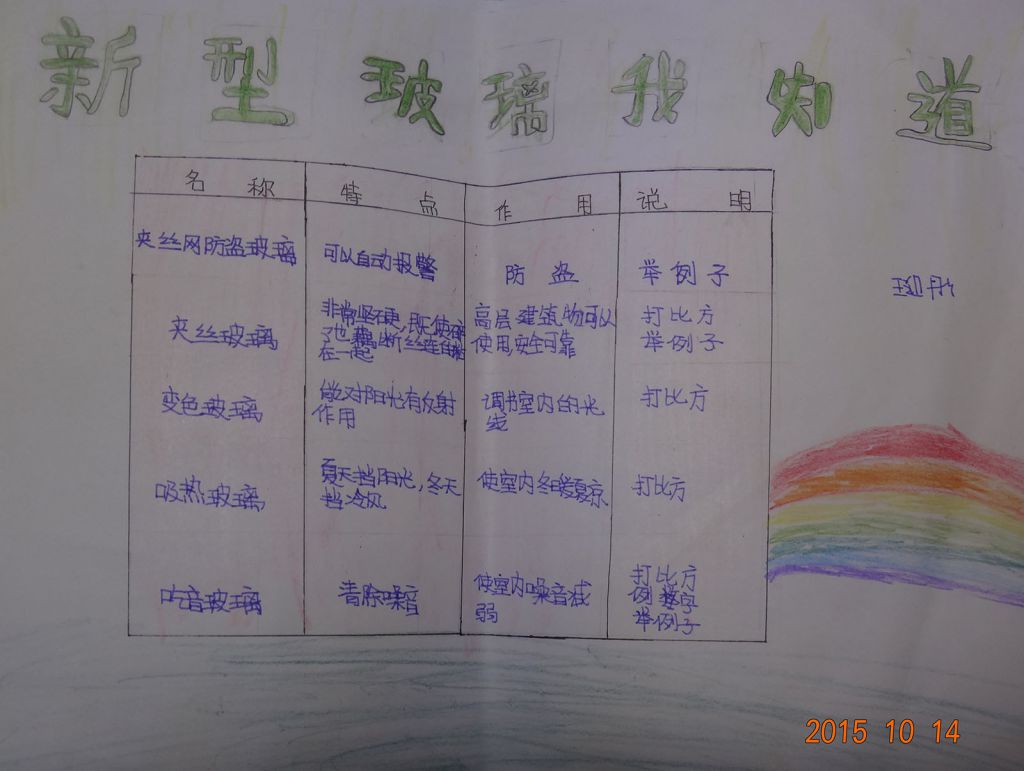 新型玻璃我知道
名称 特点 作用 说明
夹丝网防盗玻璃 可以自动报警 防盗 举例子
琨彤
夹丝玻璃 非常坚硬,既使碎 高层建筑物可以 打比方
了也断丝连自粘 使用,安全可靠 举例子
在一起
变色玻璃 做对阳光有反射 调节室内的光 打比方
作用 线
吸热玻璃 夏天挡阳光,冬天 使室内冬暖夏凉 打比方
挡冷风
吃音玻璃 清除噪音 使室内噪音减 打比方
弱 例
举例子
2015 10 14